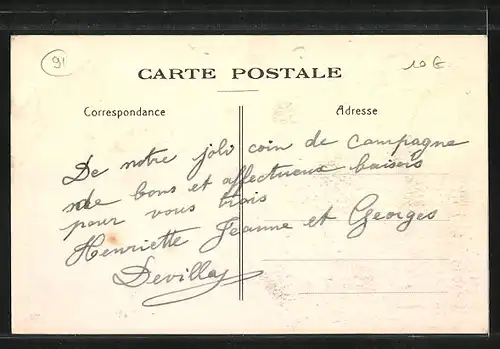 91
10 €
CARTE POSTALE
Correspondance
Adresse
De notre joli coin de campagne
de bons et affectueux baisers
pour vous trois
Henriette Jeanne et Georges